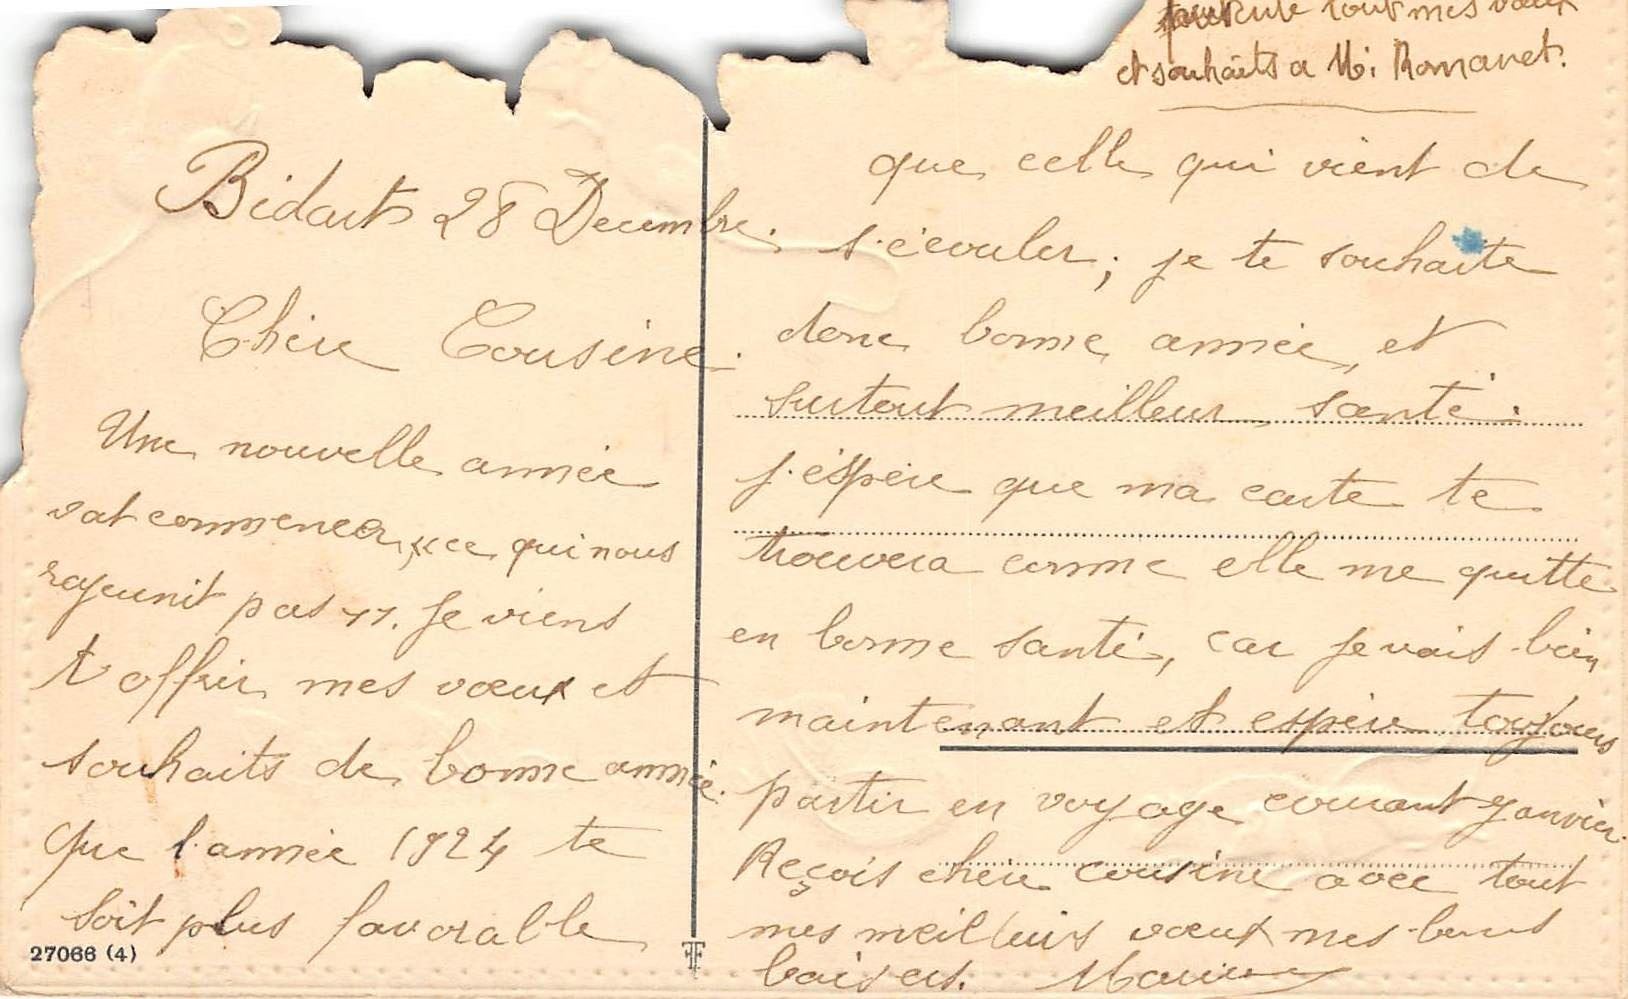 Bidart 28 Decembre.
Chère Cousine.
Une nouvelle année
vat commencer, "ce qui nous
rajeunit pas". Je viens
t'offrir mes vœux et
souhaits de bonne année.
Que l'année 1924 te
soit plus favorable
27066 (4)
tout mes vœux
et souhaits a M. Romanet.
que celle qui vient de
s'écouler; je te souhaite
donc bonne année, et
surtout meilleur santé.
J'éspère que ma carte te
trouvera comme elle me quitte
en bonne santé, car je vais bien
maintenant et espère toujours
partir en voyage courant Janvier.
Reçois chère cousine avec tout
mes meilleurs vœux mes bons
baisers.